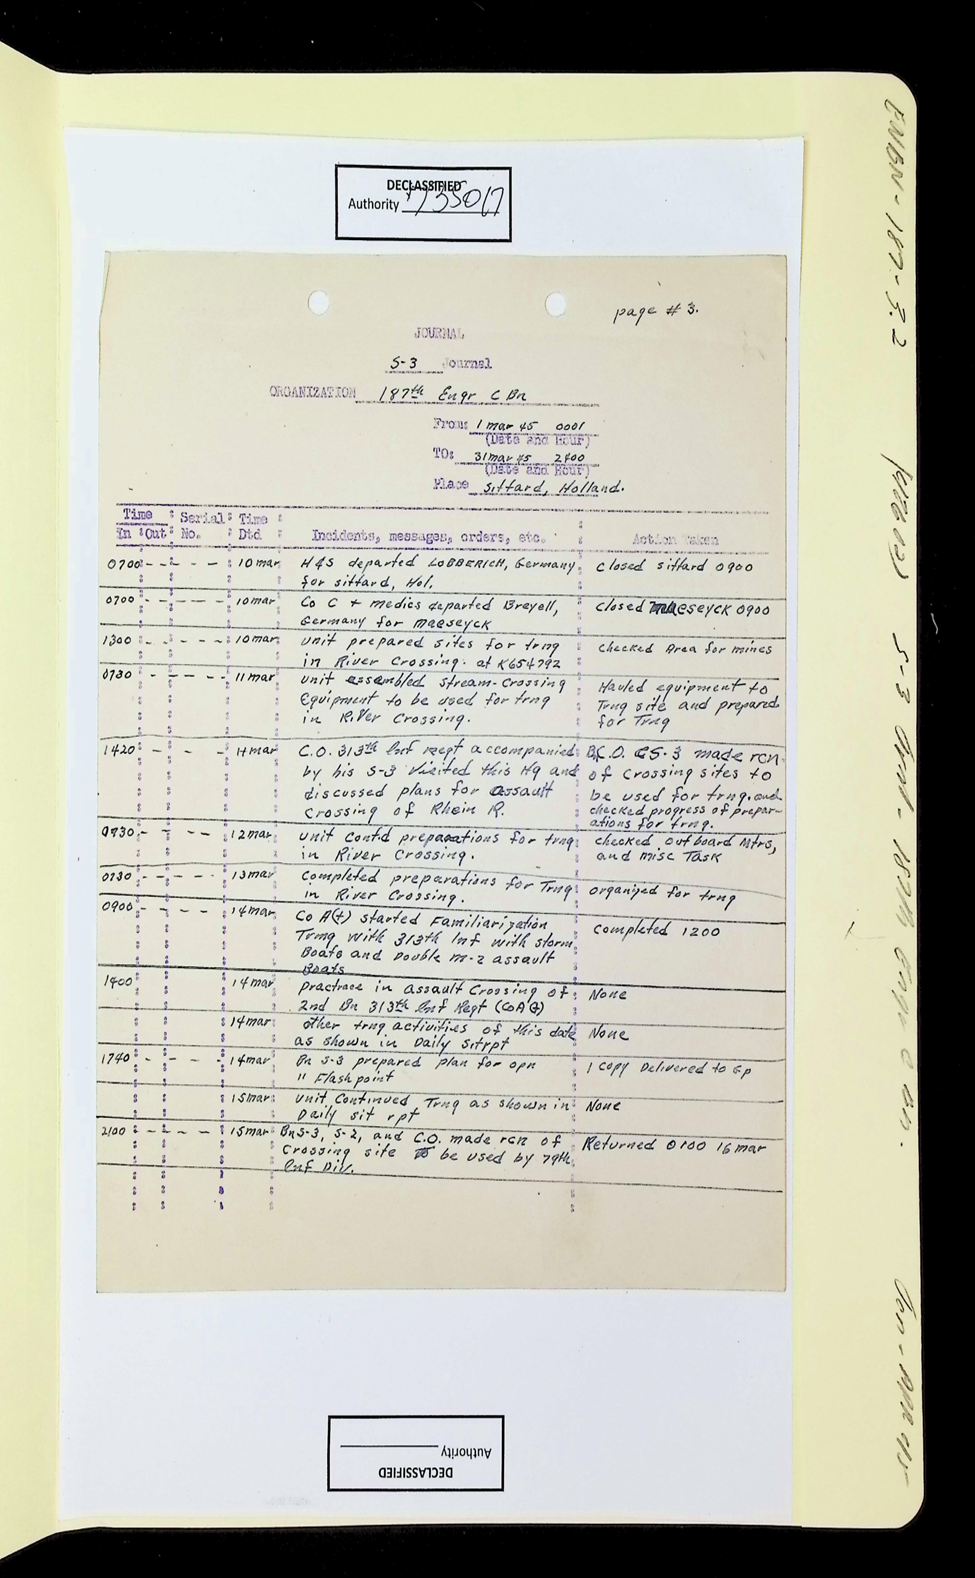 DECLASSIFIED
Authority 735017
page # 3.
JOURNAL
S-3 Journal
ORGANIZATION 187th Engr C Bn
From: 1 mar 45 0001
(Date and Hour)
TO: 31 mar 45 2400
(Date and Hour)
Place Sittard, Holland.
Time Serial Time
In Out No. Dtd Incidents, messages, orders, etc. Action Taken
0700 - - - - - 10 mar H&S departed LOBBERICH, Germany closed sittard 0900
for sittard, Hol.
0700 - - - - - 10 mar Co C + medics departed Breyell, closed maeseyck 0900
Germany for maeseyck
1300 - - - - - 10 mar unit prepared sites for trng checked Area for mines
in River Crossing. at K654792
0730 - - - - - 11 mar unit assembled stream-Crossing Hauled equipment to
Equipment to be used for trng Trng site and prepared
in River Crossing. for Trng
1420 - - - 11 mar C.O. 313th Inf Regt accompanied C.O. & S-3 made rcn
by his S-3 visited this Hq and of crossing sites to
discussed plans for assault be used for trng. and
Crossing of Rhein R. checked progress of prepar-
ations for trng.
0730 - - - - 12 mar unit Contd preparations for trng checked outboard Mtrs,
in River Crossing. and misc Task
0730 - - - - - 13 mar Completed preparations for Trng organized for trng
in River Crossing.
0900 - - - - 14 mar Co A(+) started Familiarization completed 1200
Trng with 313th Inf with storm
Boats and Double m-2 assault
Boats
1400 14 mar practrace in assault Crossing of None
2nd Bn 313th Inf Regt (Co A(+)
14 mar other trng activities of this date None
as shown in Daily sitrpt
1740 - - - - 14 mar Bn S-3 prepared plan for opn 1 copy Delivered to Gp
" Flashpoint
15 mar unit Continued Trng as shown in None
Daily sit rpt
2100 - - - - - 15 mar Bn S-3, S-2, and C.O. made rcn of Returned 0100 16 mar
Crossing site to be used by 79th
Inf Div.
DECLASSIFIED
Authority
ENBN-187-3.2
S-3 Jrnl - 187th Engr C Bn.
Jan-Apr 45